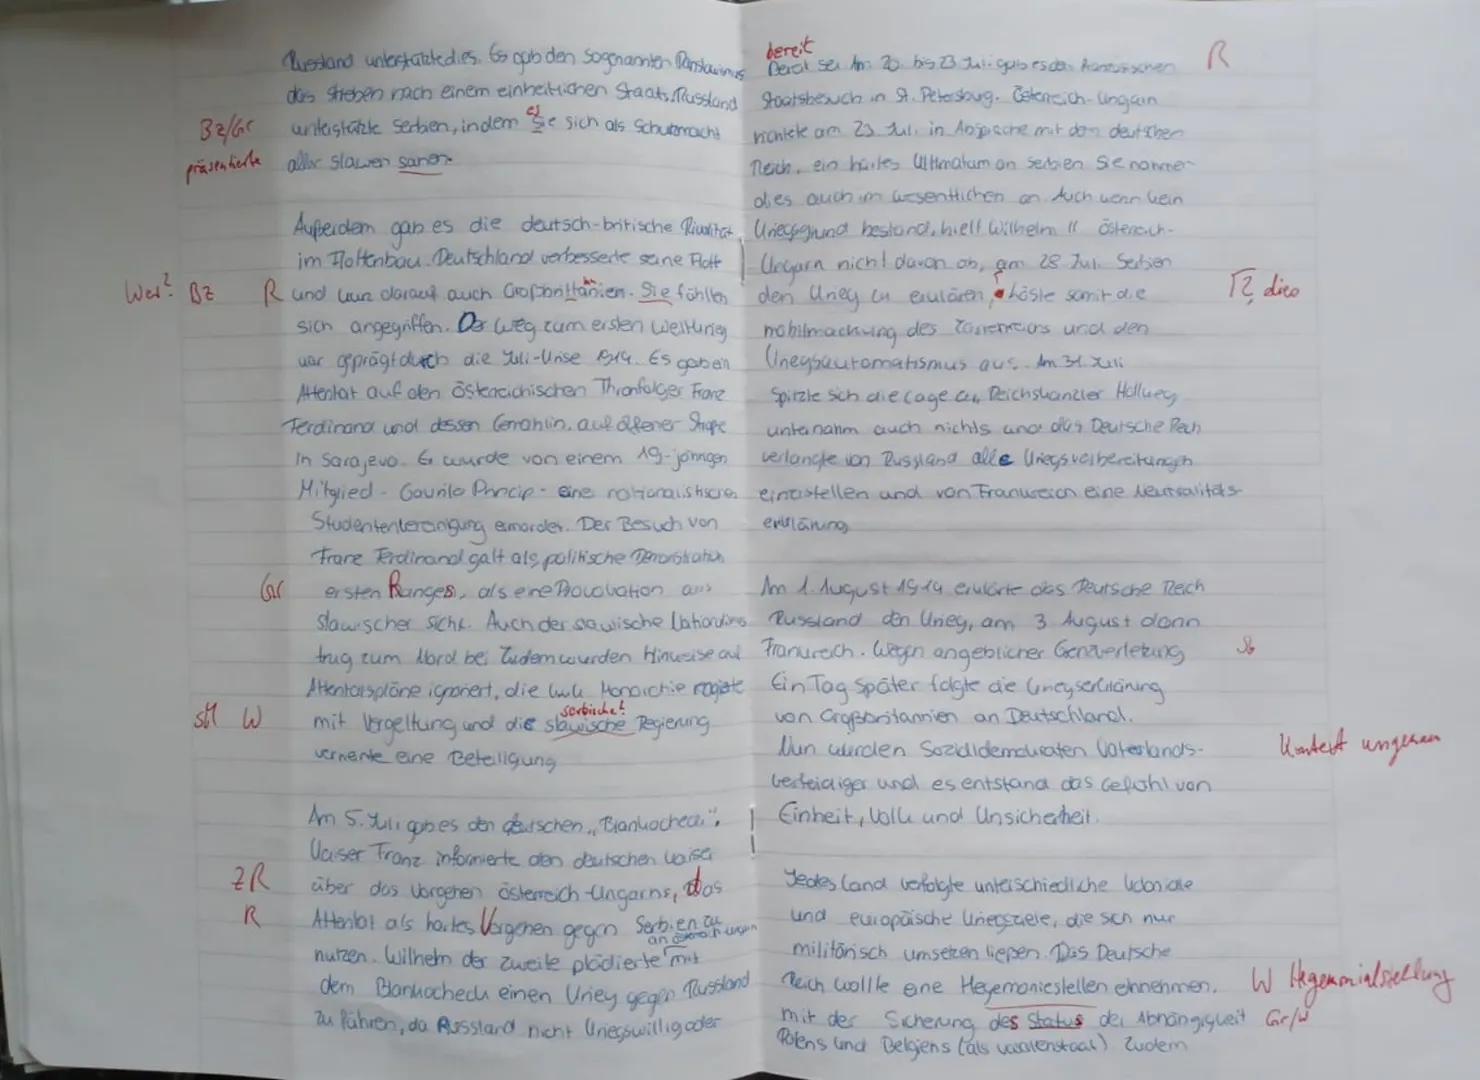 Russland unterstützte dies. Es gab den sogenannten Panslawismus
das Streben nach einem einheitlichen Staat. Russland
Bz/Gr unterstützte Serben, indem Sie es sich als Schutzmacht
präsentierte aller Slawen sahen.
Außerdem gab es die deutsch-britische Rivalität
im Flottenbau. Deutschland verbesserte seine Flott
Wer? Bz R und kurz darauf auch Großbrittanien. Sie fühlten
sich angegriffen. Der Weg zum ersten Weltkrieg
war geprägt durch die Juli-Krise 1914. Es gab ein
Attentat auf den österreichischen Thronfolger Franz
Ferdinand und dessen Gemahlin, auf offener Straße
in Sarajevo. Er wurde von einem 19-jährigen
Mitglied - Gavrilo Princip - eine nationalistischen
Studentenvereinigung ermordet. Der Besuch von
Franz Ferdinand galt als politische Demonstration
Gr ersten Ranges, als eine Provokation aus
slawischer Sicht. Auch der slawische Nationalismus
trug zum Mord bei. Zudem wurden Hinweise auf
Attentatspläne ignoriert, die k.u.k. Monarchie reagierte
W mit Vergeltung und die slawische serbische! Regierung
verneinte eine Beteiligung
Am 5. Juli gab es den deutschen "Blankocheck".
Kaiser Franz informierte den deutschen Kaiser
ZR über das Vorgehen Österreich-Ungarns, das
R Attentat als hartes Vorgehen gegen Serbien zu
nutzen. Wilhelm der zweite plädierte mit
dem Blankocheck einen Krieg gegen Russland
zu führen, da Russland nicht kriegswillig oder
bereit
bereit sei. Am 20. bis 23 Juli gab es den französischen R
Staatsbesuch in St. Petersburg. Österreich-Ungarn
richtete am 23 Juli in Absprache mit dem deutschen
Reich, ein hartes Ultimatum an Serbien Sie nahmen
dies auch im wesentlichen an. Auch wenn kein
Kriegsgrund bestand, hielt Wilhelm II österreich-
Ungarn nicht davon ab, am 28 Juli Serbien
den Krieg zu erklären, löste somit die
mobilmachung des Zarenreichs und den
Kriegsautomatismus aus. Am 31. Juli
Spitzte sich die Lage zu, Reichskanzler Hollweg
unternahm auch nichts und das Deutsche Reich
verlangte von Russland alle Kriegsvorbereitungen
einzustellen und von Frankreich eine Neutralitäts-
erklärung
Am 1. August 1914 erklärte das Deutsche Reich
Russland den Krieg, am 3 August dann
Frankreich. Wegen angeblicher Grenzverletzung
Ein Tag Später folgte die Kriegserklärung
von Großbritannien an Deutschland.
Nun wurden Sozialdemokraten Vaterlands- Kontext ungenau
verteidiger und es entstand das Gefühl von
Einheit, Volk und Unsicherheit.
Jedes Land verfolgte unterschiedliche koloniale
und europäische Kriegsziele, die sich nur
militärisch umsetzen ließen. Das Deutsche
Reich wollte eine Hegemoniestellen einnehmen. W Hegemonialstellung
mit der Sicherung des Status der Abhängigkeit Gr/W
Polens und Belgiens (als Vasallenstaat) Zudem